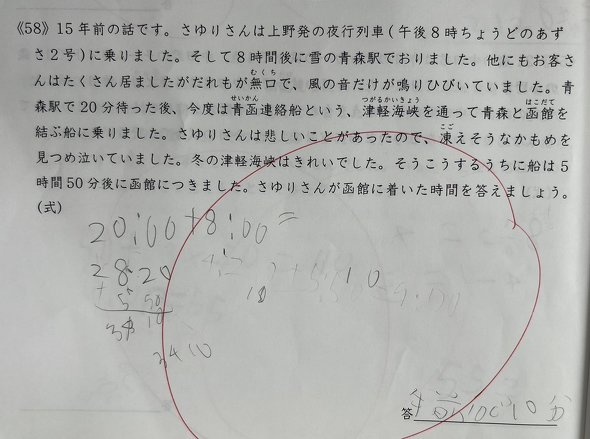 《58》15年前の話です。さゆりさんは上野発の夜行列車(午後8時ちょうどのあず
さ2号)に乗りました。そして8時間後に雪の青森駅でおりました。他にもお客さ
んはたくさん居ましたがだれもが無口で、風の音だけが鳴りひびいていました。青
森駅で20分待った後、今度は青函連絡船という、津軽海峡を通って青森と函館を
結ぶ船に乗りました。さゆりさんは悲しいことがあったので、凍えそうなかもめを
見つめ泣いていました。冬の津軽海峡はきれいでした。そうこうするうちに船は5
時間50分後に函館につきました。さゆりさんが函館に着いた時間を答えましょう。
(式)
20:00+8:00=
28:20
+5 50
34 10
答 午前10じ10分